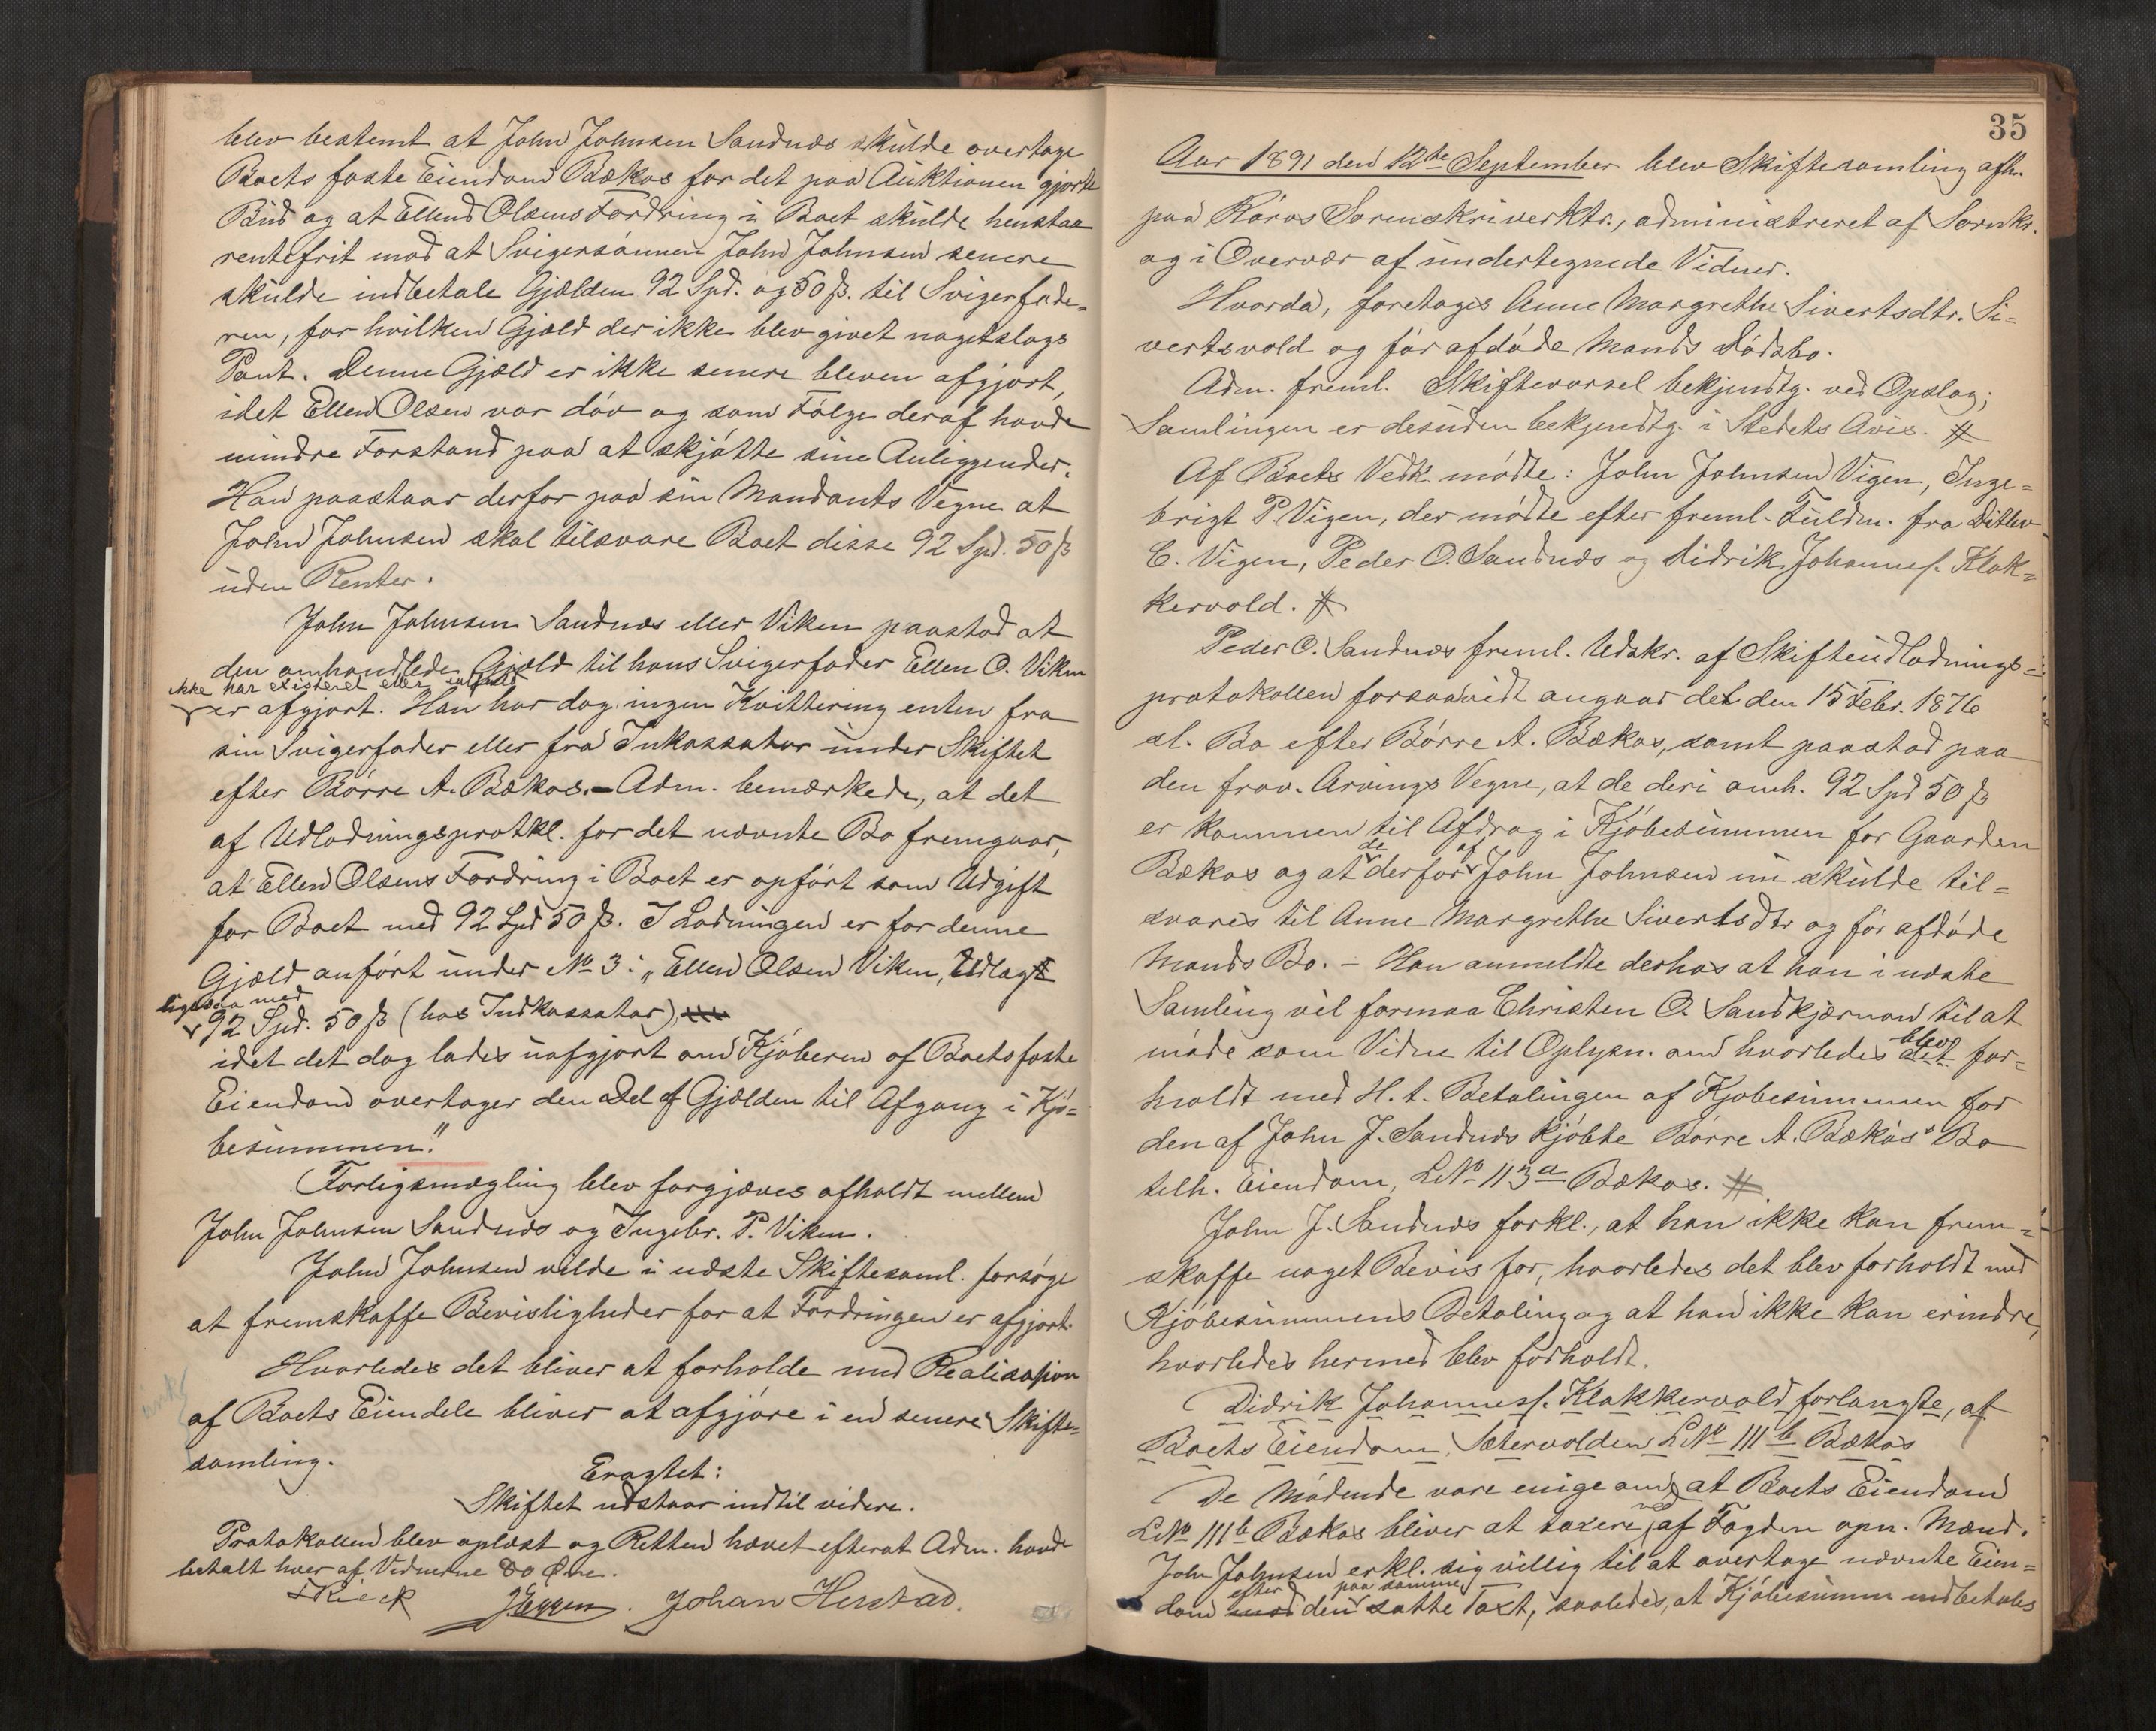 blev bestemt at John Johnsen Sandnæs skulde overtage
Boets faste Eiendom Bækos for det paa Auktionen gjorte
Bud og at Ellend Olsens Fordring i Boet skulde henstaa
rentefrit mod at Svigersønnen John Johnsen senere
skulde indbetale Gjælden 92 Spd. og 50 ß. til Svigerfade-
ren, for hvilken Gjæld der ikke blev givet nogetslags
Pant. Denne Gjæld er ikke senere bleven afgjort,
idet Ellen Olsen var døv og som Følge deraf havde
mindre Forstand paa at skjøtte sine Anliggender.
Han paastaar derfor paa sin Mandants Vegne at
John Johnsen skal tilsvare Boet disse 92 Spd. 50 ß
uden Renter.
John Johnsen Sandnæs eller Viken paastod at
den omhandlede Gjæld til hans Svigerfader Ellen O. Viken
ikke har existeret eller ialfald
er afgjort. Han har dog ingen Kvittering enten fra
sin Svigerfader eller fra Inkassator under Skiftet
efter Børre A. Bækos. - Adm. bemærkede, at det
af Udlodningsprotkl. for det nævnte Bo fremgaar,
at Ellen Olsens Fordring i Boet er opført som Udgift
for Boet med 92 Spd 50 ß. I Lodningen er for denne
Gjæld anført under No 3: „Ellen Olsen Viken, Udlagt
ligesaa med
92 Spd. 50 ß (hos Indkassator),
idet det dog lades uafgjort om Kjøberen af Boets faste
Eiendom overtager den Del af Gjælden til Afgang i Kjø-
besummen."
Forligsmægling blev forgjæves afholdt mellem
John Johnsen Sandnæs og Ingebr. P. Viken.
John Johnsen vilde i næste Skiftesaml. forsøge
at fremskaffe Bevisligheder for at Fordringen er afgjort.
Hvorledes det bliver at forholde med Realisation
af Boets Eiendele bliver at afgjøre i en senere Skifte-
samling.
Eragtet:
Skiftet udstaar indtil videre.
Protokollen blev oplæst og Retten hævet efterat Adm. havde
betalt hver af Vidnerne 80 Øre.
Rieck JEggen. Johan Herstad.
35
Aar 1891 den 12te September blev Skiftesamling afh.
paa Røros Sorenskriverktr., administreret af Sornkr.
og i Overvær af undertegnede Vidner.
Hvorda, foretages Anne Margrethe Sivertsdtr. Si-
vertsvold og før afdøde Mands Dødsbo.
Adm. freml. Skiftevarsel bekjendtg. ved Opslag;
Samlingen er desuden bekjendtg. i Stedets Avis. #
Af Boets Vedk. mødte: John Johnsen Vigen, Inge-
brigt P. Vigen, der mødte efter freml. Fuldm. fra Ditlev
C. Vigen, Peder O. Sandnæs og Didrik Johannesf. Klok-
kervold. #
Peder O. Sandnæs freml. Udskr. af Skifteudlodnings-
protokollen forsaavidt angaar det den 15 Febr. 1876
sl. Bo efter Børre A. Bækos, samt paastod paa
den frav. Arvings Vegne, at de deri omh. 92 Spd 50 ß
er kommen til Afdrag i Kjøbesummen for Gaarden
de af
Bækos og at derfor John Johnsen nu skulde til-
svares til Anne Margrethe Sivertsdtr og før afdøde
Mands Bo. - Han anmeldte derhos at han i næste
Samling vil formaa Christen O. Sandkjærnan til at
møde som Vidne til Oplysn. om hvorledes det for-
blev
holdt med H. t. Betalingen af Kjøbesummen for
den af John J. Sandnæs kjøbte Børre A. Bækos's Bo
tilh. Eiendom, LNo 113a Bækos. #
John J. Sandnæs forkl., at han ikke kan frem-
skaffe noget Bevis for, hvorledes det blev forholdt med
Kjøbesummens Betaling og at han ikke kan erindre,
hvorledes hermed blev forholdt.
Didrik Johannesf. Klokkervold forlangte, at
Boets Eiendom Sætervolden LNo 111b Bækos
De Mødende vare enige om, at Boets Eiendom
LNo 111b Bækos bliver at taxere ved af Fogden opn. Mænd.
John Johnsen erkl. sig villig til at overtage nævnte Eien-
efter paa samme
dom mod den satte Taxt, saaledes, at Kjøbesummen indbetales